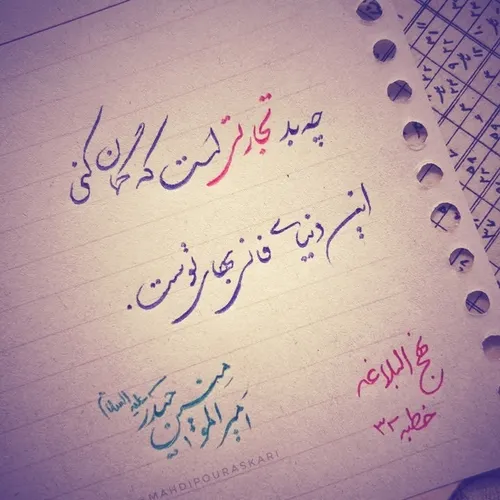 چه بد تجارتی است که گمان کنی
این دنیای فانی بهای توست.
نهج البلاغه
خطبه ۳۲
امیرالمؤمنین حیدر علیه السلام
MAHDIPOURASKARI